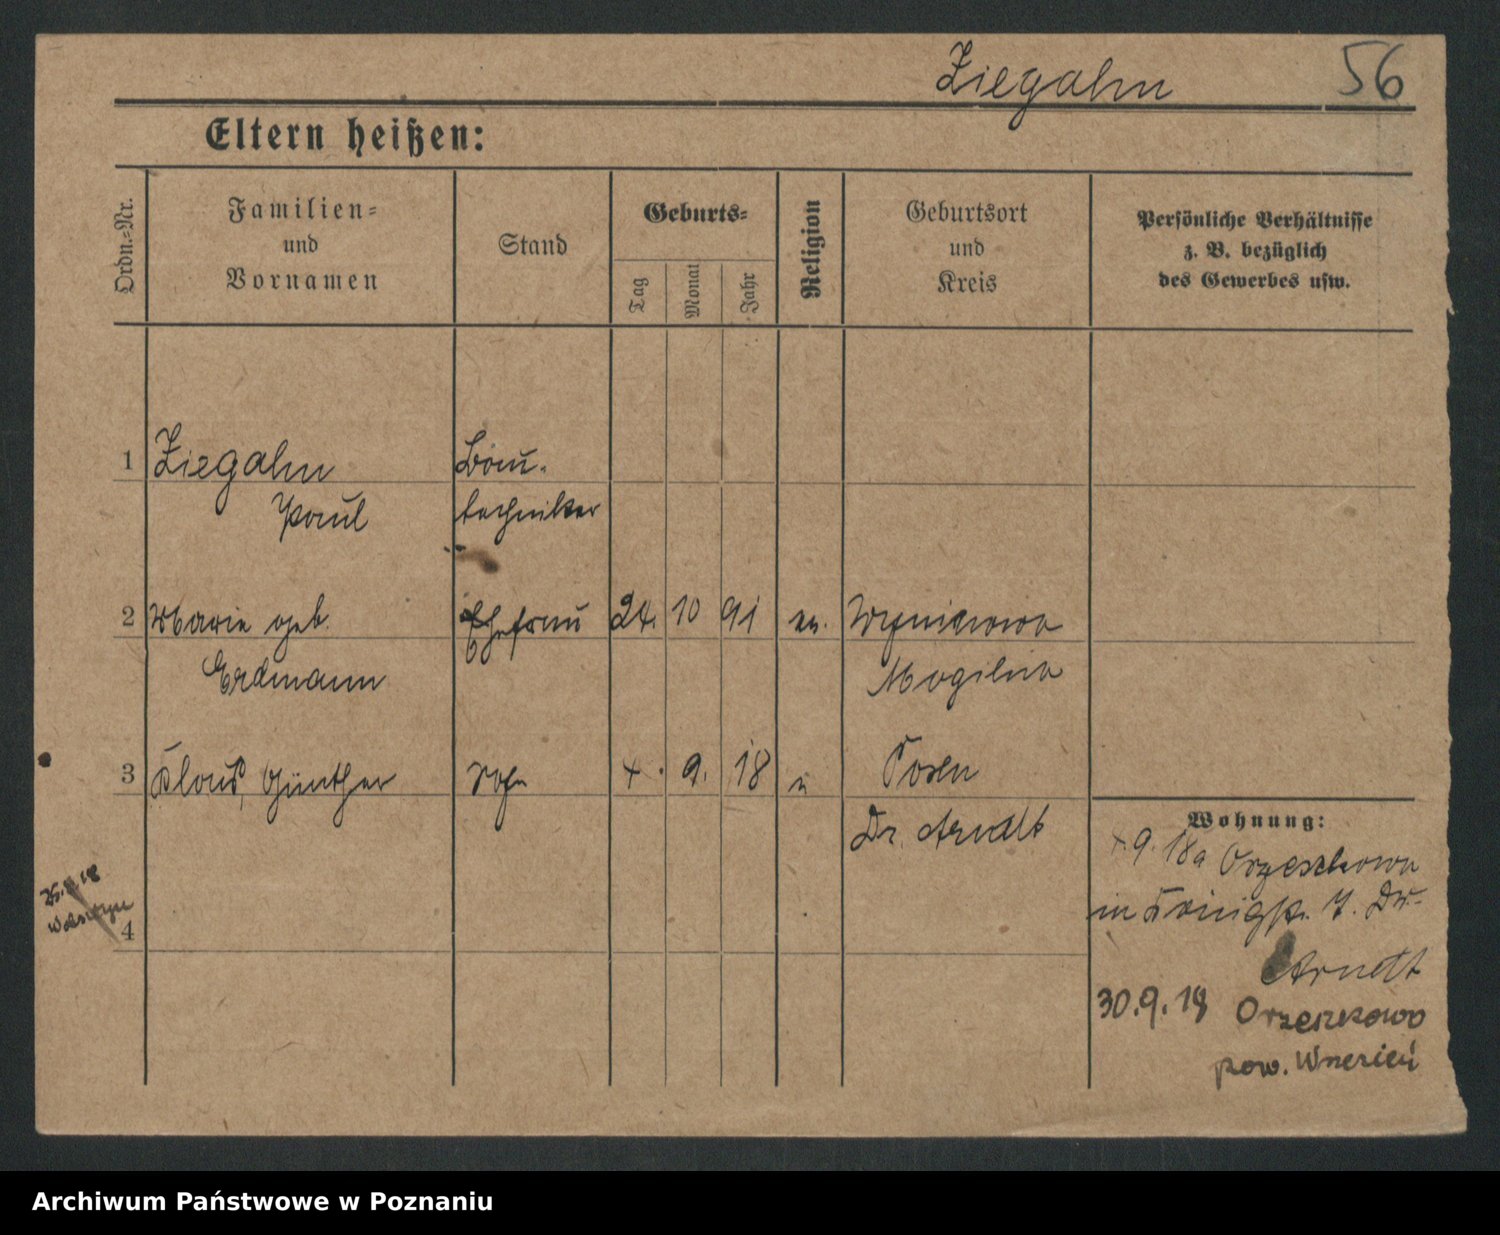 Ziegahn 56
Eltern heißen:
Ordn.-Nr.
Familien-
und
Vornamen
Stand
Geburts-
Tag
Monat
Jahr
Religion
Geburtsort
und
Kreis
Persönliche Verhältnisse
z. B. bezüglich
des Gewerbes usw.
1 Ziegahn Bau-
Paul techniker
2 Marie geb. Ehefrau 24. 10 91 ev.
Erdmann Mogilno
3 Klaus, Günther Sohn 4. 9. 18 Posen
Dr. Arndt
Wohnung:
9. 18 Orzeschowo
in Königspl. 7. Dr.
Arndt
30.9.18 Orzeszkowo
pow.
4
Archiwum Państwowe w Poznaniu